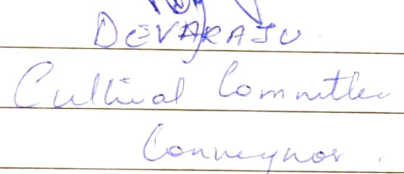 DEVARAJU.
Cultural Committee
Conveynor.